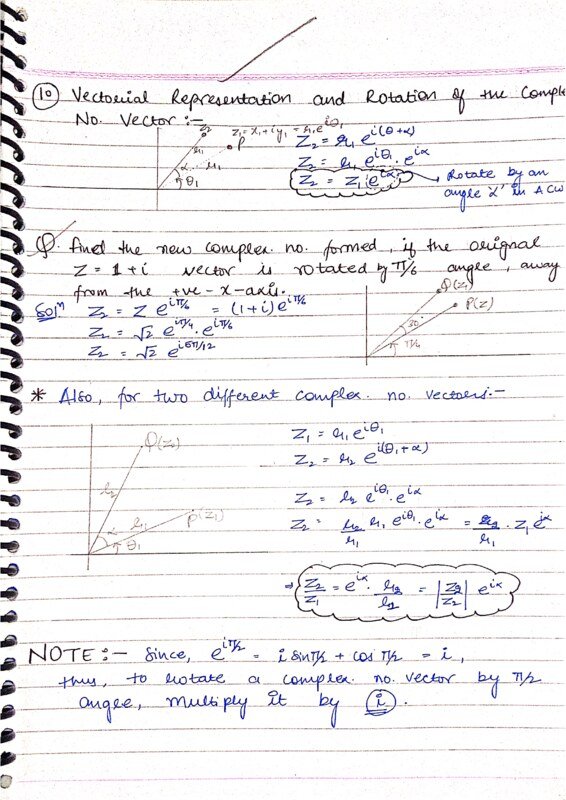 10 Vectorial Representation and Rotation of the Comple
No. Vector :-
z₁ = x₁ + iy₁ = r₁e^iθ₁
z₂
P
r₁
r₁
α
θ₁
Z₂ = r₁ e^i(θ+α)
Z₂ = r₁ e^iθ₁ . e^iα
Z₂ = Z₁ e^iα
Rotate by an
angle 'α' in ACW
Q. Find the new complex no. formed, if the orignal
Z = 1 + i vector is rotated by π/6 angle, away
from the +ve-x-axis.
Solⁿ Z₂ = Z e^iπ/6 = (1+i) e^iπ/6
Z₂ = √2 e^iπ/4 . e^iπ/6
Z₂ = √2 e^i5π/12
Q(z₁)
P(z)
30°
π/6
* Also, for two different complex no. vectors:-
Q(z₂)
r₂
r₁
P(z₁)
α
θ₁
Z₁ = r₁ e^iθ₁
Z₂ = r₂ e^i(θ₁+α)
Z₂ = r₂ e^iθ₁ . e^iα
Z₂ = r₂/r₁ r₁ e^iθ₁ . e^iα = r₂/r₁ . Z₁ e^iα
⇒ Z₂/Z₁ = e^iα . r₂/r₁ = |Z₂/Z₂| e^iα
NOTE :- Since, e^iπ/2 = i sin π/2 + cos π/2 = i,
thus, to rotate a complex no. vector by π/2
angle, multiply it by i.